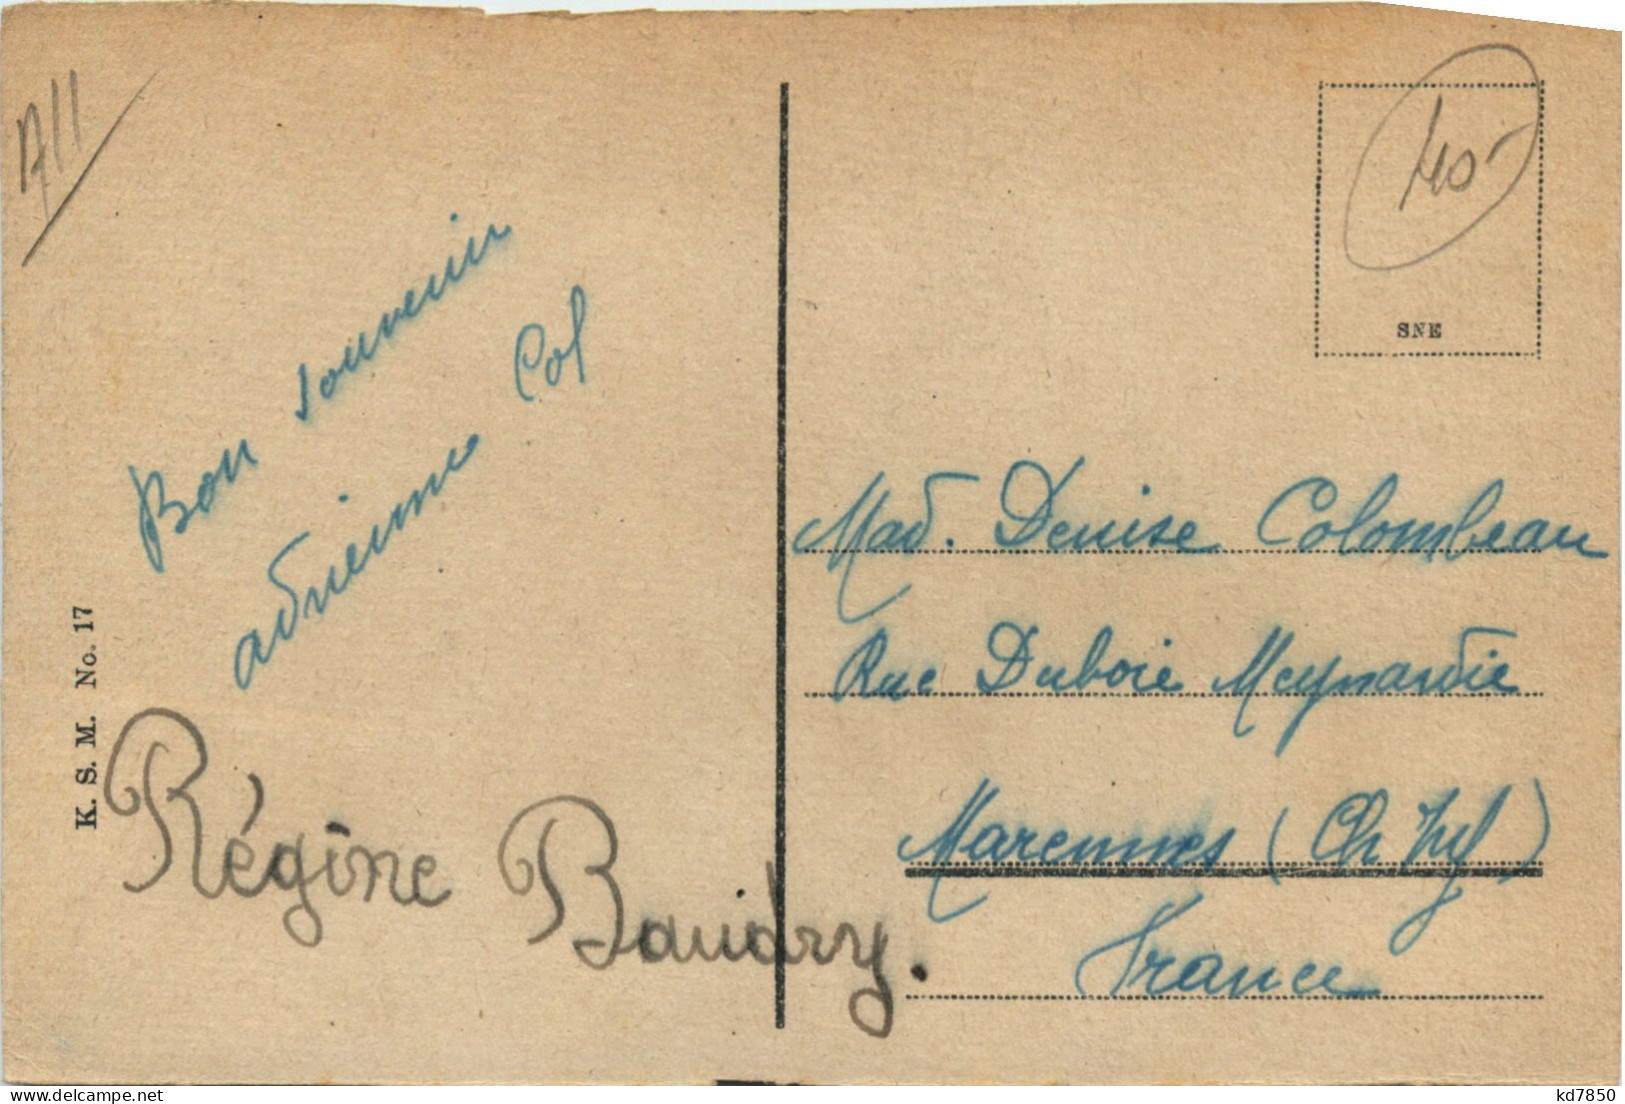 A11
Bon souvenir
adrienne Col
K. S. M. No. 17
Régine Baudry.
40-
SNE
Mad. Denise Colombeau
Rue Dubois Meynardie
Marennes (Ch Inf)
France
delcampe.net
kd7850